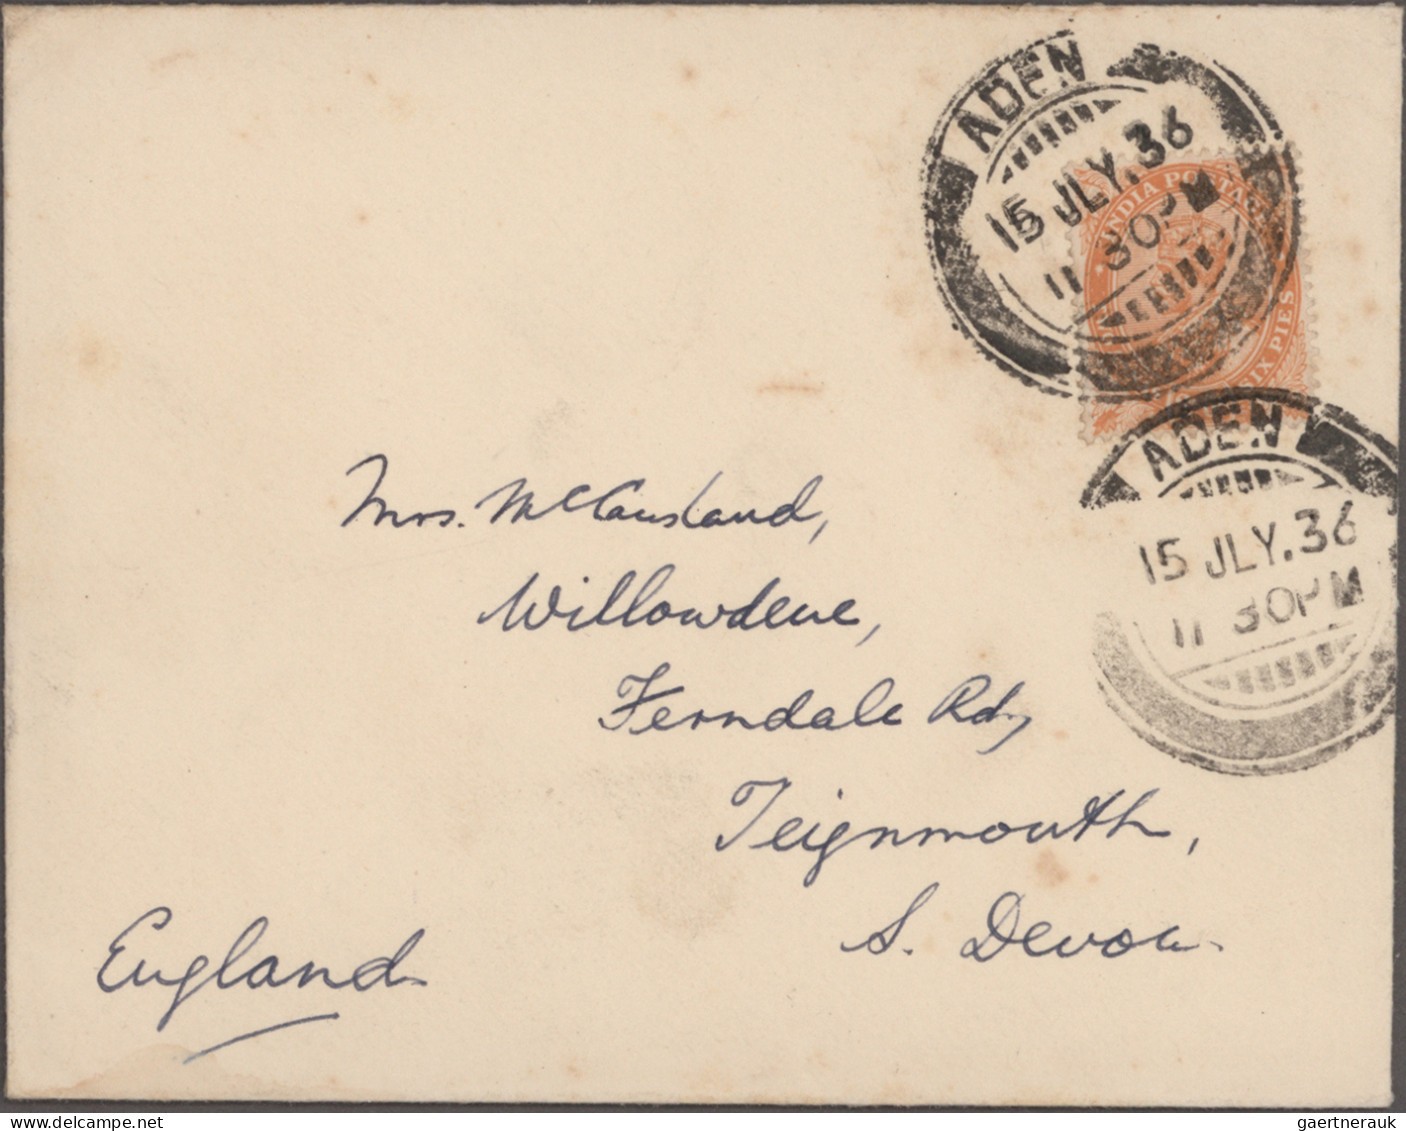 ADEN
15 JLY.36
11 30PM
INDIA POSTAGE
SIX PIES
ADEN
15 JLY.36
11 30PM
Mrs. McCausland,
Willowdene,
Ferndale Rd,
Teignmouth,
S. Devon
England
gaertnerauk